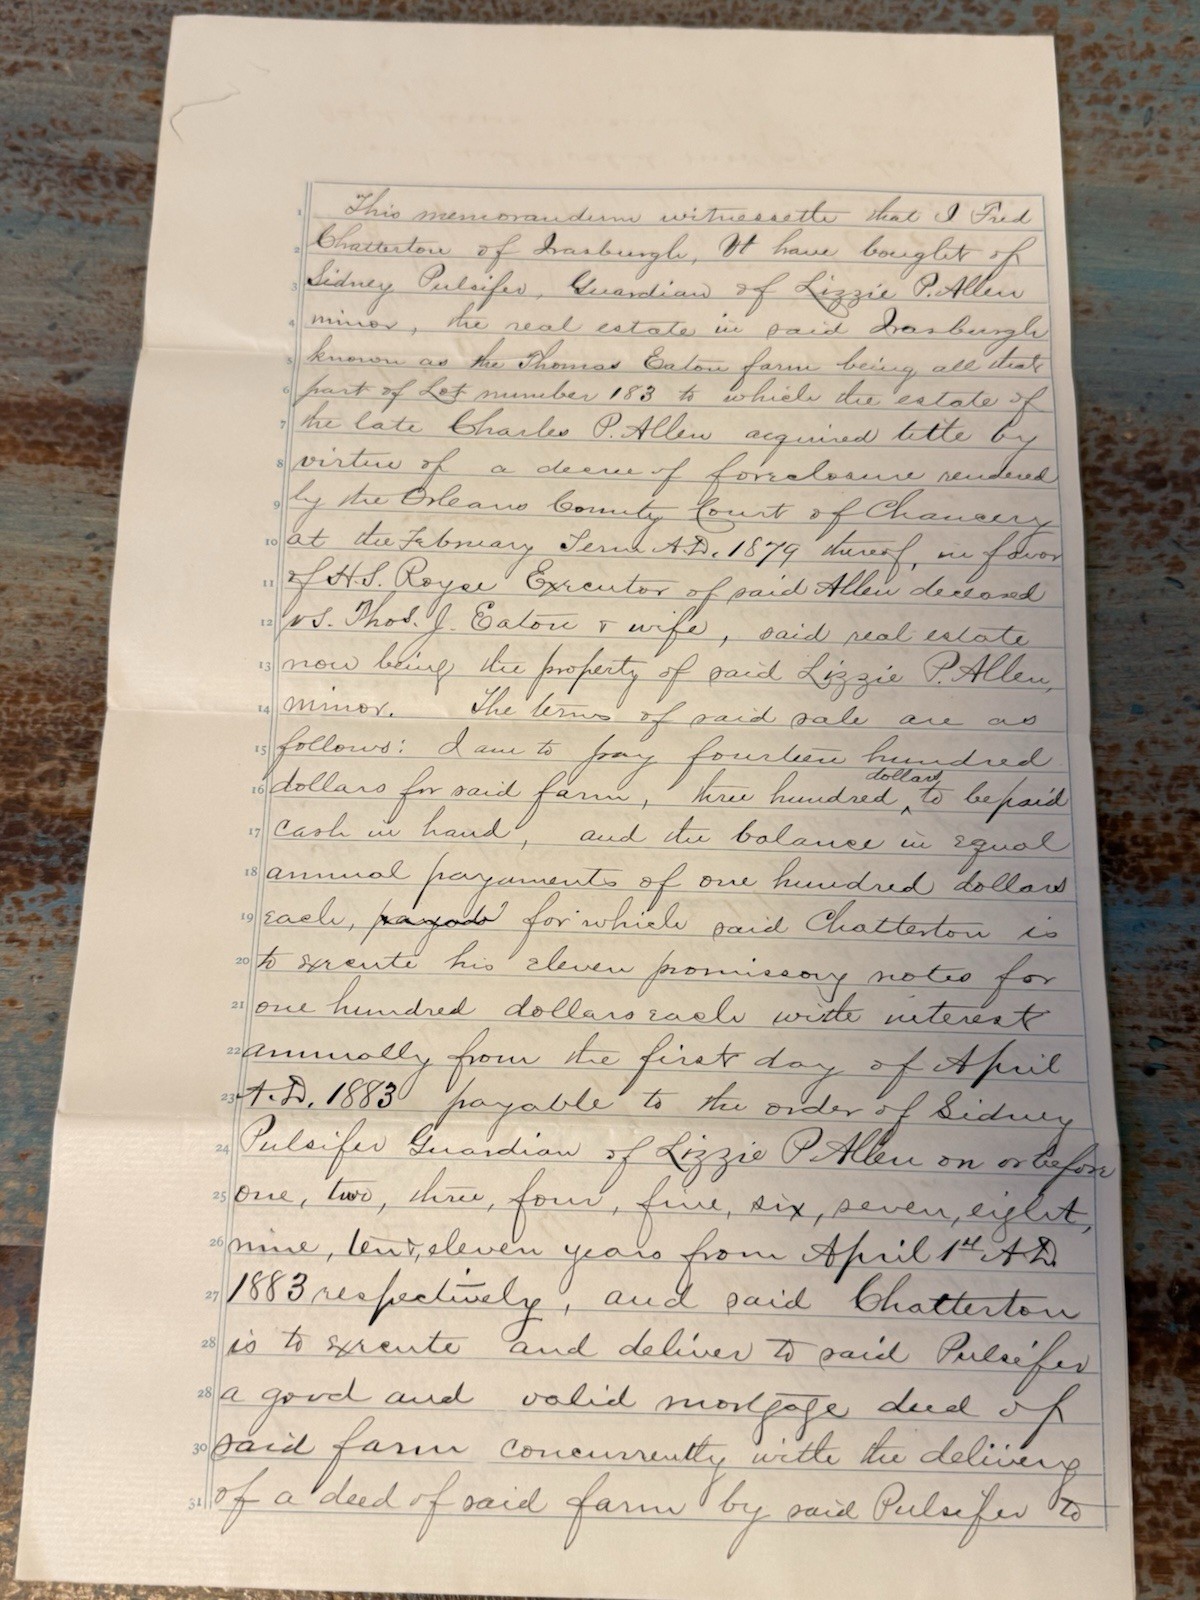 1 This memorandum witnesseth that I Fred
2 Chatterton of Irasburgh, Vt have bought of
3 Sidney Pulsifer, Guardian of Lizzie P. Allen
4 minor, the real estate in said Irasburgh
5 known as the Thomas Eaton farm being all that
6 part of Lot number 183 to which the estate of
7 the late Charles P. Allen acquired title by
8 virtue of a decree of foreclosure rendered
9 by the Orleans County Court of Chancery
10 at the February Term A.D. 1879 thereof, in favor
11 of H.S. Royse Executor of said Allen deceased
12 vs. Thos. J. Eaton & wife, said real estate
13 now being the property of said Lizzie P. Allen,
14 minor. The terms of said sale are as
15 follows: I am to pay fourteen hundred
16 dollars for said farm, three hundred dollars to be paid
17 cash in hand, and the balance in equal
18 annual payaments of one hundred dollars
19 each, for which said Chatterton is
20 to execute his eleven promissory notes for
21 one hundred dollars each with interest
22 annually from the first day of April
23 A.D. 1883 payable to the order of Sidney
24 Pulsifer Guardian of Lizzie P. Allen on or before
25 one, two, three, four, five, six, seven, eight,
26 nine, ten &, eleven years from April 1st A.D.
27 1883 respectively, and said Chatterton
28 is to execute and deliver to said Pulsifer
28 a good and valid mortgage deed of
30 said farm concurrently with the delivery
31 of a deed of said farm by said Pulsifer to